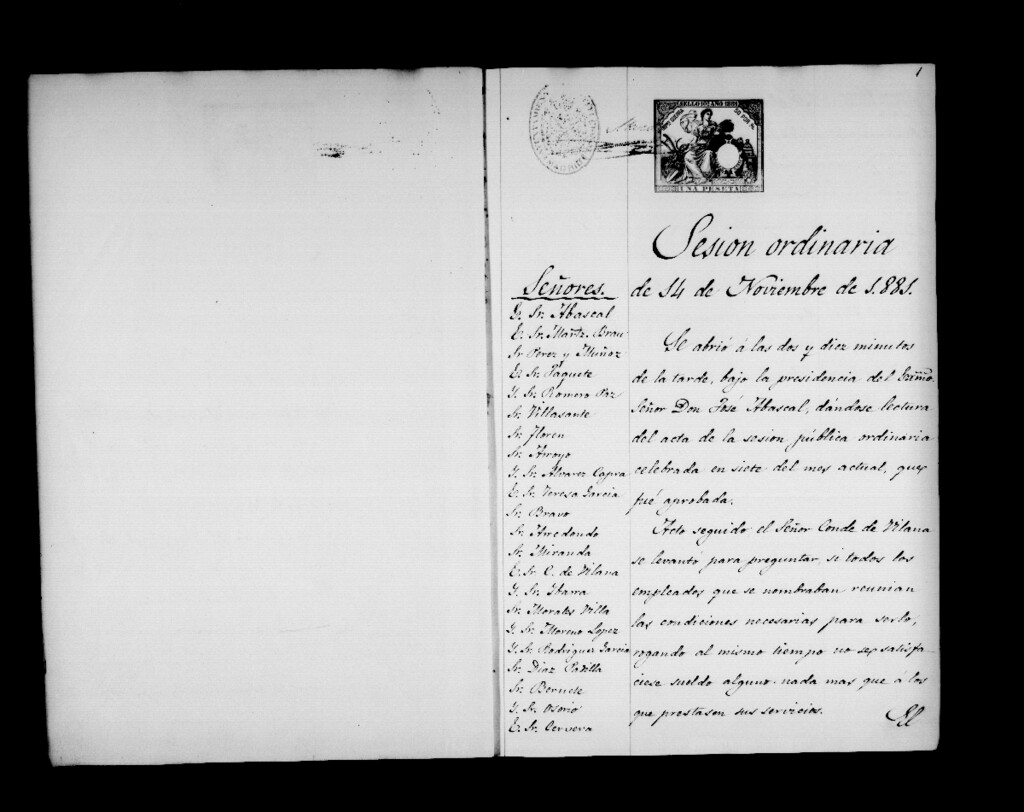 1
UNA PESETA
Sesion ordinaria
de 14 de Noviembre de 1.881.
Señores.
E. Sr. Abascal
E. Sr. Martz. Brau
Sr. Perez y Muñoz
E. Sr. Paquete
Y. Sr. Romero Paz
Sr. Villasante
Sr. Floren
Sr. Arroyo
Y. Sr. Alvarez Capra
E. Sr. Teresa Garcia
Sr. Bravo
Sr. Arredondo
Sr. Miranda
E. Sr. C. de Vilana
Y. Sr. Ibarra
Sr. Morales Villa
Y. Sr. Moreno Lopez
Y. Sr. Rodriguez Garcia
Sr. Diaz Padilla
Sr. Beruete
Y. Sr. Osorio
E. Sr. Cervera
Se abrió á las dos y diez minutos
de la tarde, bajo la presidencia del Exmo.
Señor Don José Abascal, dándose lectura
del acta de la sesion pública ordinaria
celebrada en siete del mes actual, que
fué aprobada.
Acto seguido el Señor Conde de Vilana
se levantó para preguntar, si todos los
empleados que se nombraban reunian
las condiciones necesarias para serlo,
rogando al mismo tiempo no se satisfa-
ciese sueldo alguno nada mas que á los
que prestasen sus servicios.
El